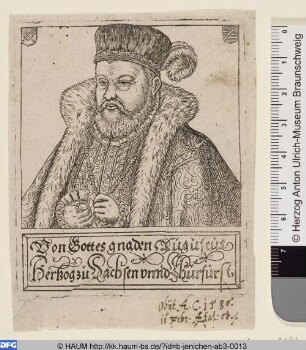 Von Gottes gnaden Augustus
Hertzog zu Sachsen vnnd Churfürst
obijt A. C. 1586.
11 Febr. Ætat. 60.
© Herzog Anton Ulrich-Museum Braunschweig
0 1 2 3 4 5 6 7
DFG © HAUM http://kk.haum-bs.de/?id=b-jenichen-ab3-0013